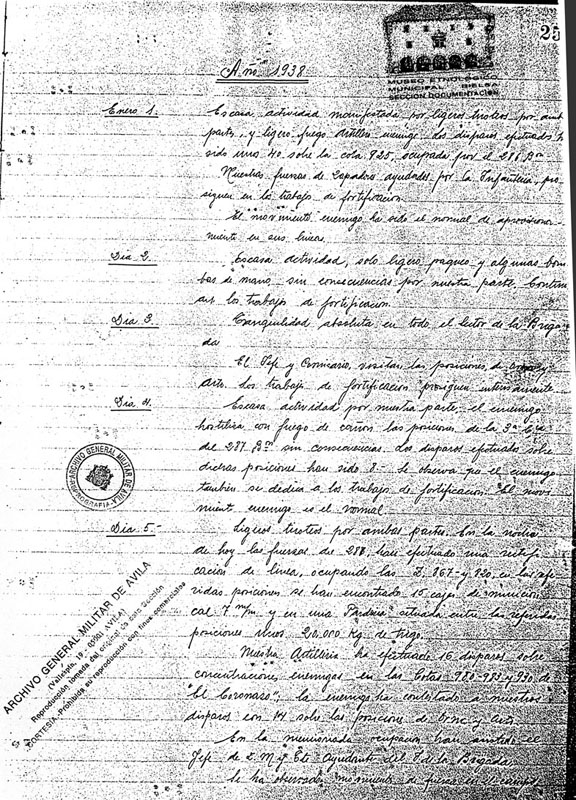 25
MUSEO ETNOLOGICO
MUNICIPAL BIELSA
SECCION DOCUMENTACION
Año 1938
Enero 1. Escasa actividad manifestada por ligeros tiroteos por ambas
partes, y ligero fuego Artillero enemigo. dos disparos efectuados
sido unos 40 sobre la cota 925, ocupada por el 286 Bon
Nuestras fuerzas de Zapadores ayudados por la Infanteria, pro-
siguen en los trabajos de fortificacion.
El movimiento enemigo ha sido el normal de aprovisiona-
miento en sus lineas.
Dia 2. Escasa actividad, solo ligero paqueo y algunas bom-
bas de mano sin consecuencias por nuestra parte. Continu-
an los trabajos de fortificacion.
Dia 3. Tranquilidad absoluta en todo el Sector de la Briga-
da
El Jefe y Comisario, visitan las posiciones de
Los trabajos de fortificacion prosiguen intensamente
Dia 4. Escasa actividad por nuestra parte, el enemigo
hostiliza con fuego de cañon las posiciones de la 3ª Cia
del 287 Bon sin consecuencias. Los disparos efectuados sobre
dichas posiciones han sido 8- Se observa que el enemigo
tambien se dedica a los trabajos de fortificacion. El movi-
miento enemigo es el normal
Dia 5.- Ligeros tiroteos por ambas partes. En la noche
de hoy las fuerzas de 288, han efectuado una rectifi-
cacion de linea, ocupando las 867 y 820, en las refe-
ridas posiciones se han encontrado 15 cajas de municion
cal 7 m/m y en una situada entre las referidas
posiciones unos 20.000 Kg de trigo.
Nuestra Artilleria ha efectuado 16 disparos sobre
concentraciones enemigas en las Cotas 980-983 y 930 de
"El Coronazo"; la enemiga ha contestado a nuestros
disparos con 14 sobre las posiciones de
En la mencionada ocupacion han asistido el
Jefe de E. M y Ayudante del J de la Brigada
Se ha observado movimiento de
ARCHIVO GENERAL MILITAR DE AVILA
ARCHIVO GENERAL MILITAR DE AVILA
(Vallespin, 19 - 05001 AVILA)
Reproducción tomada del original de esta Sección
CORTESIA.-Prohibida su reproducción con fines comerciales